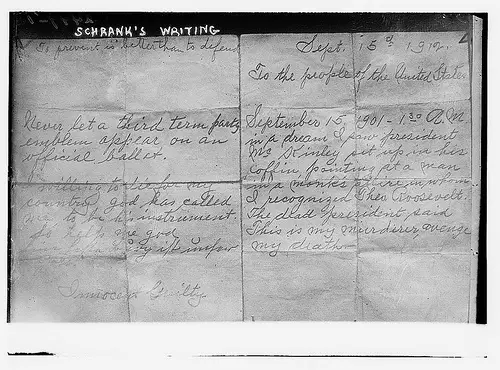 SCHRANK'S WRITING
to prevent is better than to defend
Never let a third term party
emblem appear on an
official ballot.
willing to die for my
country god has called
me to be his instrument
so help me god
Innocent Guilty
Sept. 15th 1912.
To the people of the United States
September 15, 1901 - 1:30 A.M.
in a dream I saw president
Mc Kinley sit up in his
Coffin pointing at a man
in a monk's attire in whom
I recognized Theo Roosevelt.
The dead president said
This is my murderer, avenge
my death